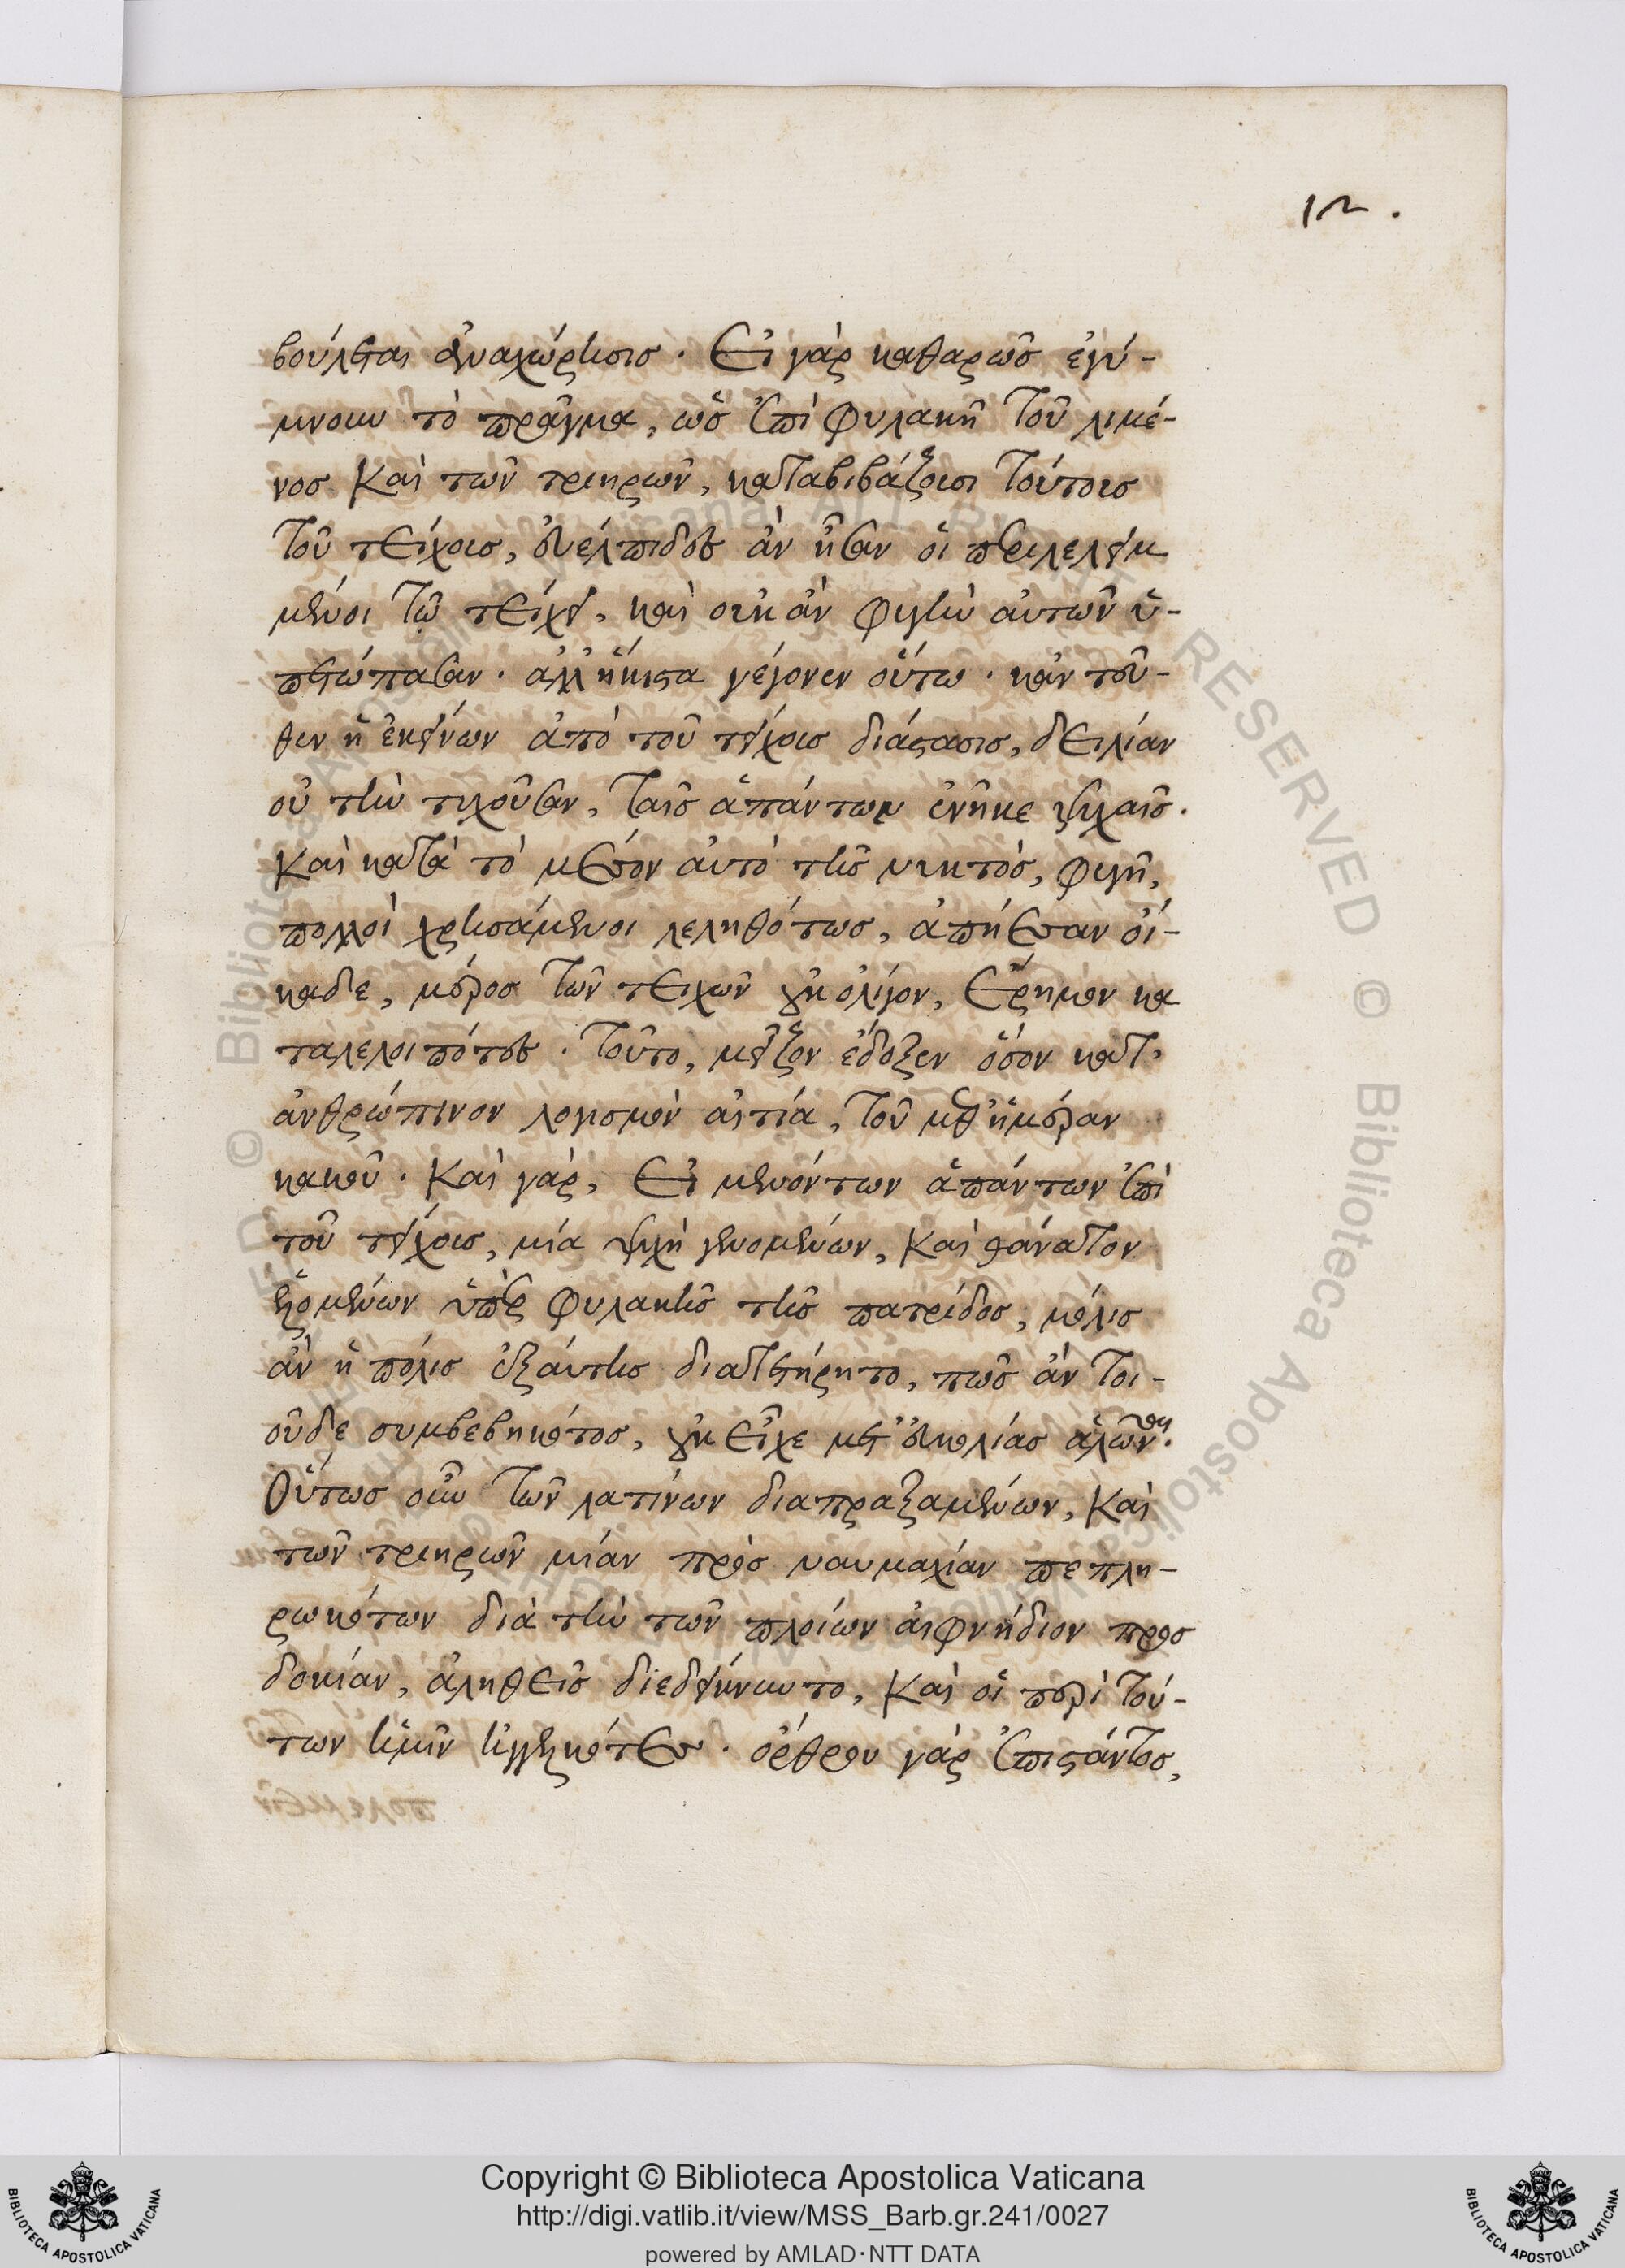 12.
βούλεται ἀναχώρησις. Εἰ γὰρ καθαρῶς ἐγί-
μνουν τὸ πρᾶγμα, ὡς ἐπὶ φυλακῇ τοῦ λιμέ-
νος καὶ τῶν τριηρῶν, καταβιβάζουσι τούτους
τοῦ τείχους, εὐέλπιδες ἂν ἦσαν οἱ περιλελειμ
μένοι τῷ τείχει, καὶ οὐκ ἂν φυγὴν αὐτῶν ὑ-
πετώπασαν. ἀλλ' ἥκιστα γέγονεν οὕτω. κἀν τοῦ-
θεν ἡ ἐκείνων ἀπὸ τοῦ τείχους διάστασις, δειλίαν
οὐ τὴν τυχοῦσαν, ταῖς ἁπάντων ἐνῆκε ψυχαῖς.
Καὶ κατὰ τὸ μέσον αὐτὸ τῆς νυκτὸς, φυγῇ,
πολλοὶ χρησάμενοι λεληθότως, ἀπῄεσαν οἴ-
καδε, μέρος τῶν τειχῶν οὐκ ὀλίγον, ἔρημον κα
ταλελοιπότες. Τοῦτο, μεῖζον ἔδοξεν ὅσον κατ'
ἀνθρώπινον λογισμὸν αἰτία, τοῦ μεθ' ἡμέραν
κακοῦ. Καὶ γὰρ, Εἰ μενόντων ἁπάντων ἐπὶ
τοῦ τείχους, μία ψυχὴ γενομένων, καὶ θάνατον
ἑλομένων ὑπὲρ φυλακῆς τῆς πατρίδος, μόλις
ἂν ἡ πόλις ἐξάντης διατετήρητο, πῶς ἂν τοι-
οῦδε συμβεβηκότος, οὐκ εἶχε μετ' εὐκολίας ἁλῶναι.
Οὕτως οὖν τῶν λατίνων διαπραξαμένων, καὶ
τῶν τριηρῶν μίαν πρὸς ναυμαχίαν πεπλη-
ρωκότων διὰ τὴν τῶν πλοίων αἰφνήδιον προσ
δοκίαν, ἀληθεῖς διεδείκνυντο, καὶ οἱ περὶ τού-
των ἡμῖν ἠγγελκότες. ὄρθρου γὰρ ἐπιστάντος,
Copyright © Biblioteca Apostolica Vaticana
http://digi.vatlib.it/view/MSS_Barb.gr.241/0027
powered by AMLAD·NTT DATA